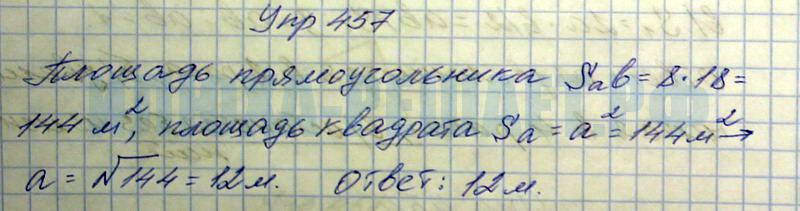 Упр 457
Площадь прямоугольника Sab = 8·18 =
144 м², площадь квадрата Sa = a² = 144 м² →
a = √144 = 12 м. Ответ: 12 м.